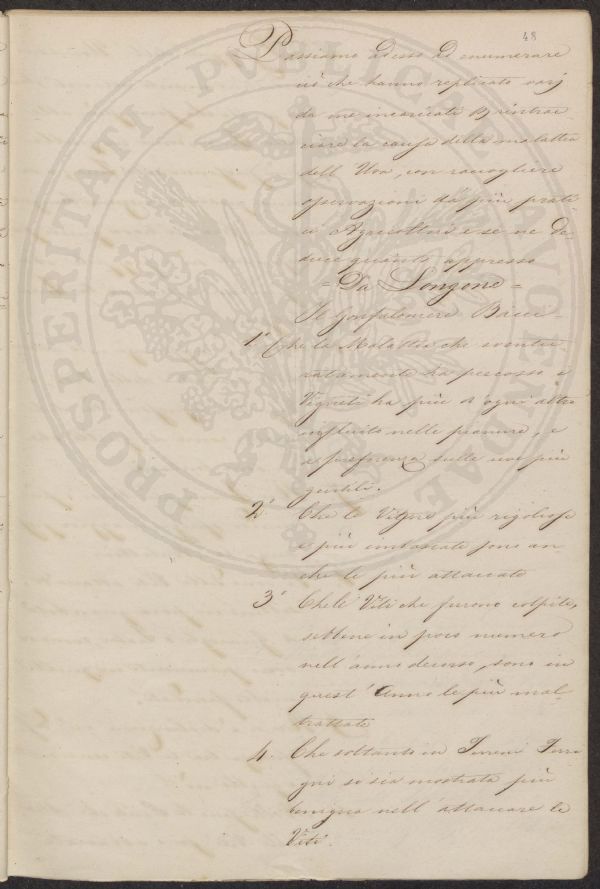 48
Passiamo adesso ad enumerare
ciò che hanno replicato varj
da me incaricati p rintrac-
ciare la causa della malattia
dell' Uva, con raccogliere
osservazioni da più prati
ci Agricoltori e se ne de-
duce quanto appresso
= Da Longone =
Il Gonfaloniere Bacce-
1° Che la Malattia che sventu-
ratamente ha percosso i
Vigneti ha più d'ogni altro
influito nelle pianure, e
a preferenza sulle uve più
gentili.
2° Che le Vigne più rigogliose
e più imboscate sono an-
che le più attaccate
3° Che le Viti che furono colpite,
sebbene in poco numero
nell' anno decorso, sono in
quest' Anno le più mal-
trattate
4. Che soltanto in Terreni Ferri
gni si sia mostrata più
benigna nell' attaccare le
Viti.
PROSPERITATI PUBLICAE AUGENDAE